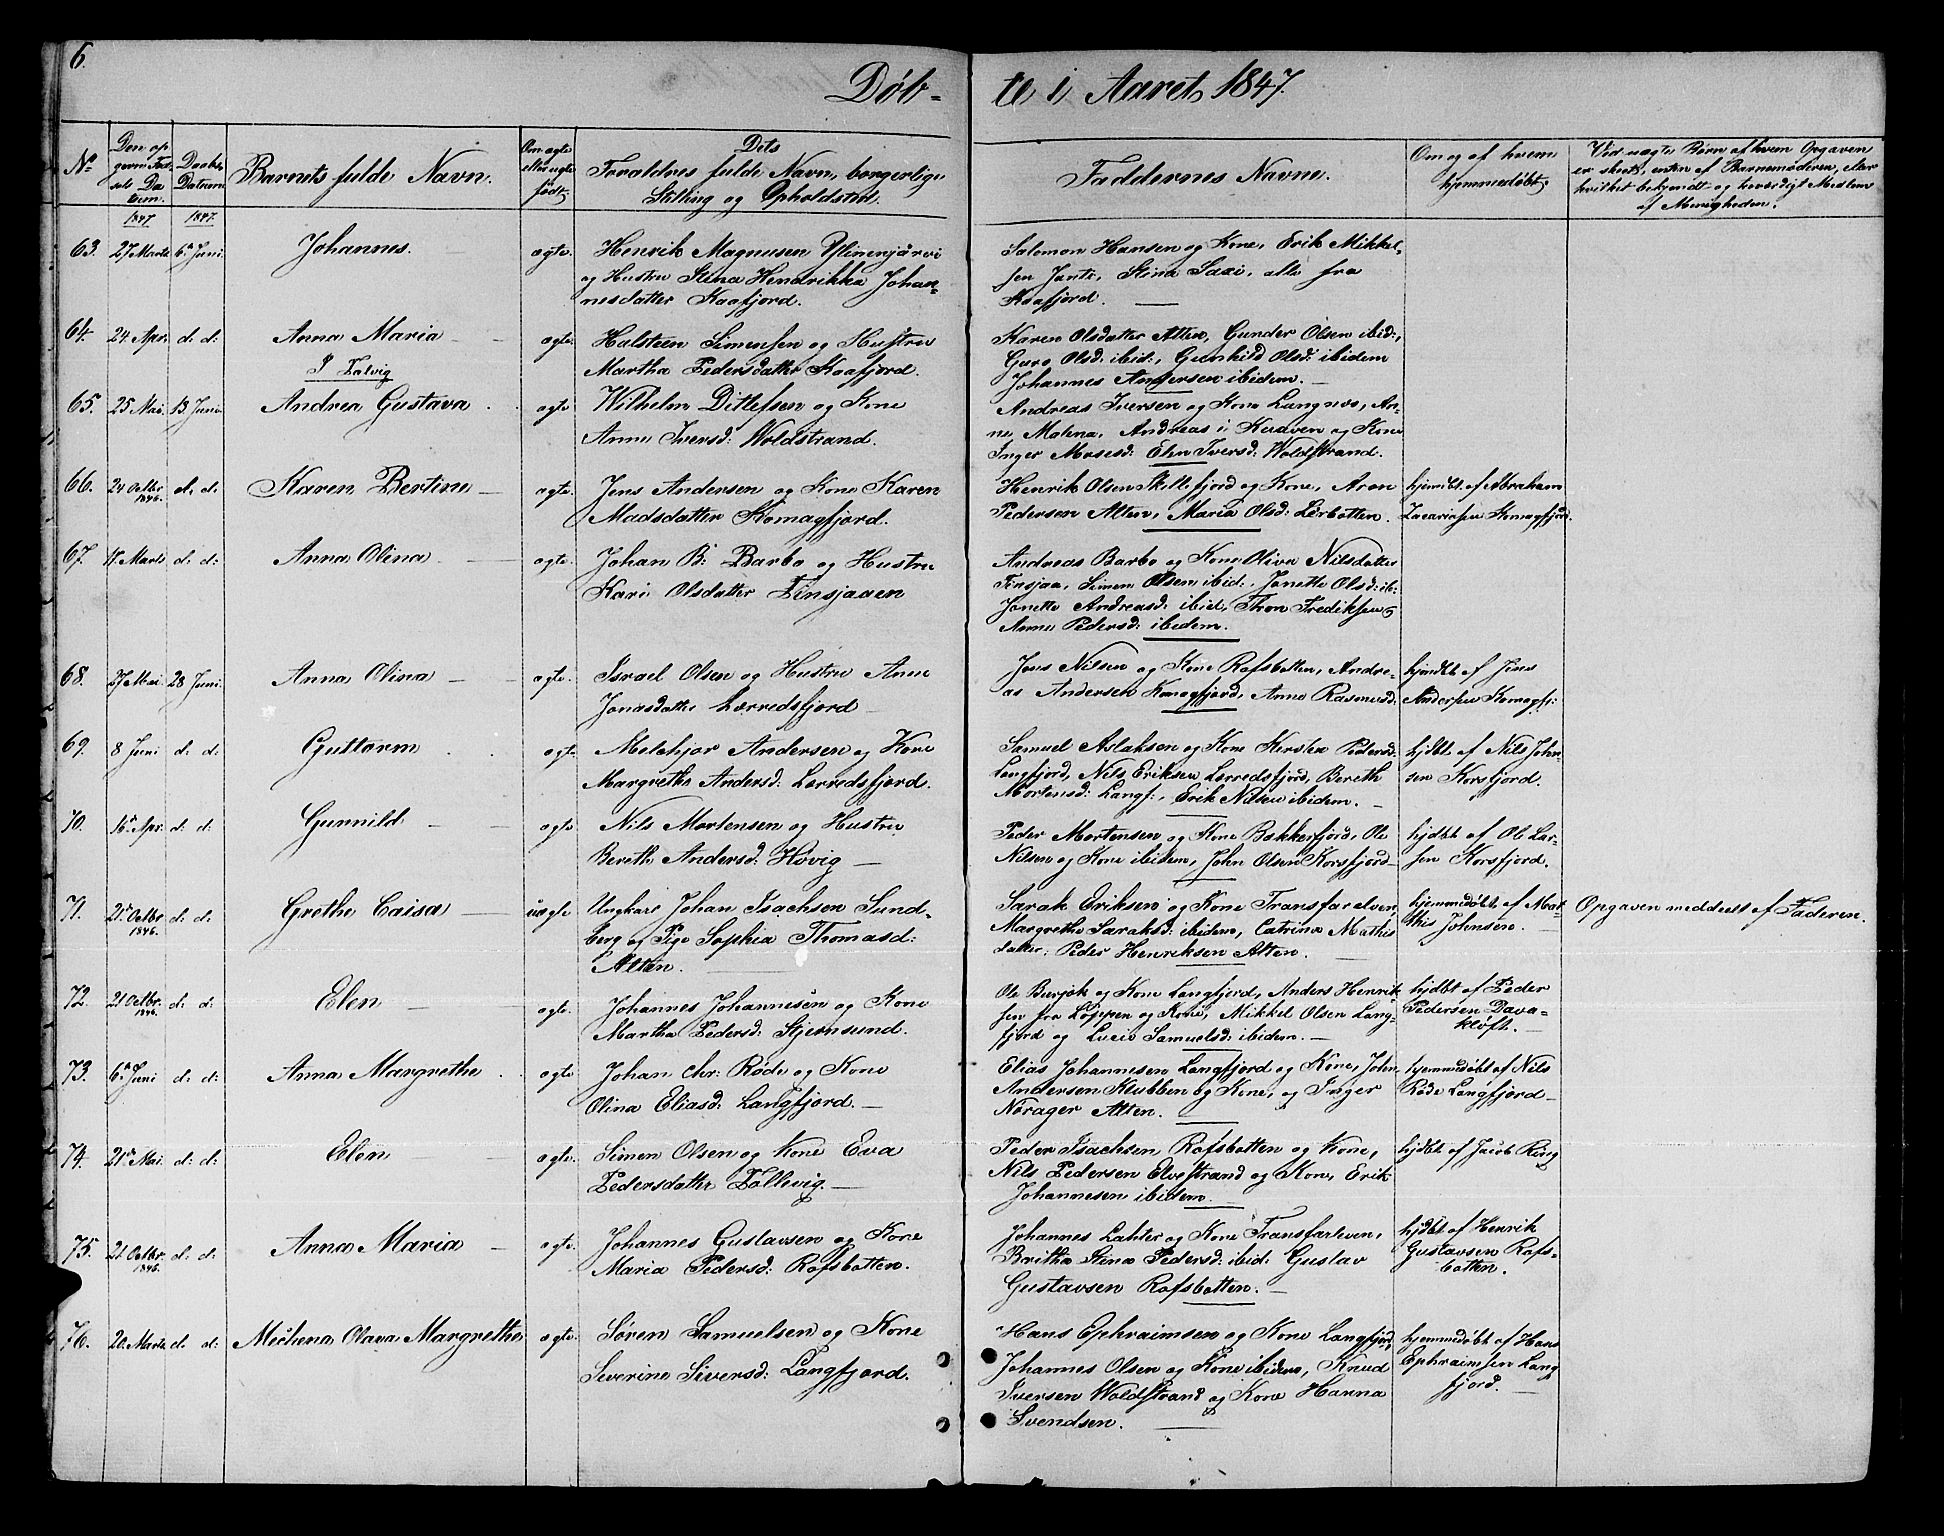 6.
Døb- te i Aaret 1847.
No
Den op
givne Fød-
sels Da
tum.
Daabs
Datum
Barnets fulde Navn.
Om ægte
eller uægte
født
Dets
Forældres fulde Navn, borgerlige
Stilling og Opholdsted.
Faddernes Navne.
Om og af hvem
hjemmedøbt.
Ved uægte Børn af hvem Opgaven
er skeet, enten af Barnemoderen, eller
hvilket bekjendt og troværdigt Medlem
af Menigheden.
1847 1847.
63. 27 Marts 6te Juni Johannes. ægte.
Henrik Magnusen Ylinenjärvi
og Hustru Stina Hendrikka Johan-
nesdatter Kaafjord.
Salomon Hansen og Kone, Erik Mikkel-
sen Jante, Stina Saxi, alle fra
Kaafjord.
64. 24 Apr. d: d: Anna Maria ægte
Halsteen Simensen og Hustru
Martha Pedersdatter Kaafjord.
Karen Olsdatter Alten, Gunder Olsen ibid:,
Guro Olsd: ibid:, Gunhild Olsd: ibidem
Johannes Andersen ibidem.
I Talvig
65. 25 Mai. 13 Juni Andrea Gustava ægte
Wilhelm Ditlefsen og Kone
Anne Iversd: Woldstrand.
Andreas Iversen og Kone Langnes, An-
ne Malena, Andreas i Kviven og Kone
Inger Mosesd: Elen Iversd: Woldstrand.
66. 24 Octbr 1846. d: d: Karen Bertine ægte
Jens Andersen og Kone Karen
Madsdatter Komagfjord.
Henrik Olsen Skillefjord og Kone, Aron
Pedersen Alten, Maria Olsd: Lerbotten.
hjemdbt af Abraham
Zacariasen Komagfjord.
67. 11. Marts d: d: Anna Olina ægte.
Johan B: Barbo og Hustru
Kari Olsdatter Tinsjaaen
Andreas Barbo og Kone Oliva Nilsdatter
Tinsjaa, Simen Olsen ibid:, Janette Olsd: ib:
Janette Andreasd: ibid, Thron Frediksen og
Anne Pedersd: ibidem.
68. 27 Mai. 28 Juni. Anna Olina ægte.
Israel Olsen og Hustru Anne
Jonasdatter Lærredsfjord
Jens Nilsen og Kone Rafsbotten, Andre-
as Andersen Komagfjord, Anne Rasmusd:
hjmdbt af Jens
Andersen Komagfj:
69. 8 Juni d: d: Guttorm ægte
Melchjor Andersen og Kone
Margrethe Andersd: Lærredsfjord.
Samuel Aslaksen og Kone Kirsten Pedersd:
Langfjord, Nils Eriksen Lerredsfjord, Bereth
Mortensd: Langf:, Erik Nilsen ibidem.
hjdbt af Nils John-
sen Korsfjord
70. 16de Apr. d: d: Gunnild ægte
Nils Mortensen og Hustru
Bereth Andersd: Høvig
Peder Mortensen og Kone Bekkerfjord, Ole
Nilsen og Kone ibidem, John Olsen Korsfjord
hjdbt af Ole Lar-
sen Korsfjord.
71. 21de Octbr. 1846. d: d: Grethe Caisa uægte
Ungkarl Johan Isachsen Sund-
berg og Pige Sophia Thomasd:
Alten.
Sarak Eriksen og Kone Transfarelven,
Margrethe Saraksd: ibidem, Catrina Mathis
datter, Peder Henriksen Alten.
hjemmedøbt af Mat-
this Johnsen.
Opgaven meddeelt af Faderen.
72. 21 Octbr. 1846. d: d: Elen ægte.
Johannes Johannesen og Kone
Martha Pedersd: Stjernsund.
Ole Burjok og Kone Langfjord, Anders Henrik-
sen fra Loppen og Kone, Mikkel Olsen Lang-
fjord og Lucie Samuelsd: ibidem.
hjdbt af Peder
Pedersen Dava-
kløft.
73. 6te Juni d: d: Anna Margrethe ægte
Johan Chr: Røde og Kone
Olina Eliasd: Langfjord.
Elias Johannesen Langfjord og Kone, John
Andersen Klubben og Kone, og Inger
Norager Alten.
hjemmedøbt af Nils
Røde Langfjord
74. 21de Mai. d: d: Elen ægte
Simen Olsen og Kone Eva
Pedersdatter Tollevig.
Peder Isachsen Rafsbotten og Kone,
Nils Pedersen Elvestrand og Kone, Erik
Johannesen ibidem.
hjdbt af Jacob Ring
75. 21. Octbr. 1846. d: d: Anna Maria ægte
Johannes Gustavsen og Kone
Maria Pedersd: Rafsbotten.
Johannes Lahter og Kone Transfarelven,
Britha Stina Pedersd: ibid: Gustav
Gustavsen Rafsbotten.
hjdbt af Henrik
Gustavsen Rafs-
botten.
76. 20. Marts d: d: Michena Olava Margrethe ægte
Søren Samuelsen og Kone
Severine Siversd: Langfjord.
Hans Ephraimsen og Kone Langfjord
Johannes Olsen og Kone ibidem, Knud
Iversen Woldstrand og Kone Hanna
Svendsen.
hjemmedøbt af Hans
Ephraimsen Lang
fjord.